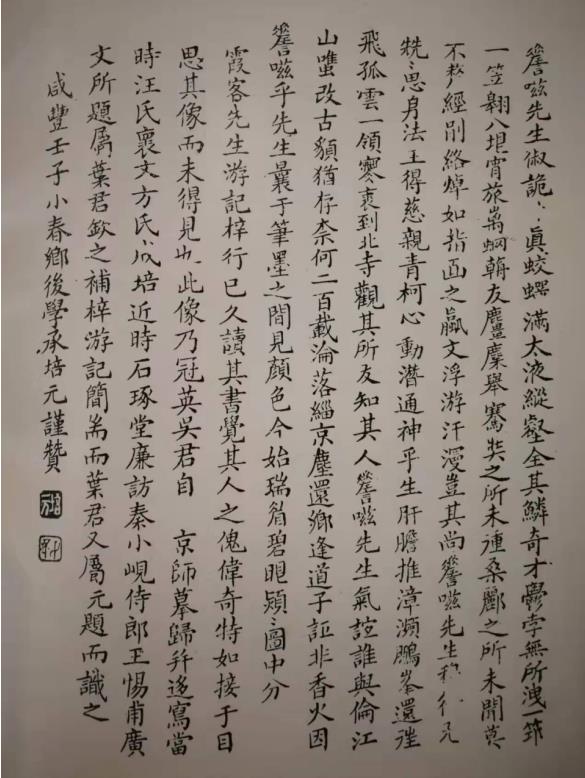 詧嗞先生俶詭詭眞蛟螭滿太液縱壑全其鱗奇才鬱孛無所洩一笻
一笠翱八堪宵旅嵩蜩翰友麠麋舉騫奘之所未歱桑酈之所未聞蓂
不孷經刖絡焯如指畫之蠃文浮游汗漫豈其尚詧嗞先生稱行元
兟兟思身法王得慈親青柯心動潛通神乎生肝膽推漳瀕鵬峯還徃
飛孤雲一領寒裘到北寺觀其所友知其人詧嗞先生氣誼誰與倫江
山嘊改古䫉猶存柰何二百載淪落緇京塵還鄉逢道子証非香火因
詧嗞乎先生曩于筆墨之間見顔色今始瑞眉碧眼頴頴圖中分
霞客先生游記梓行已久讀其書覺其人之傀偉奇特如接于目
思其像而未得見也此像乃冠英吳君自 京師摹歸并迻寫當
時汪氏襄文方氏成培近時石琢堂廉訪秦小峴侍郎王惕甫廣
文所題屬葉君欽之補梓游記簡耑而葉君又屬元題而識之
咸豐壬子小春鄉後學承培元謹贊